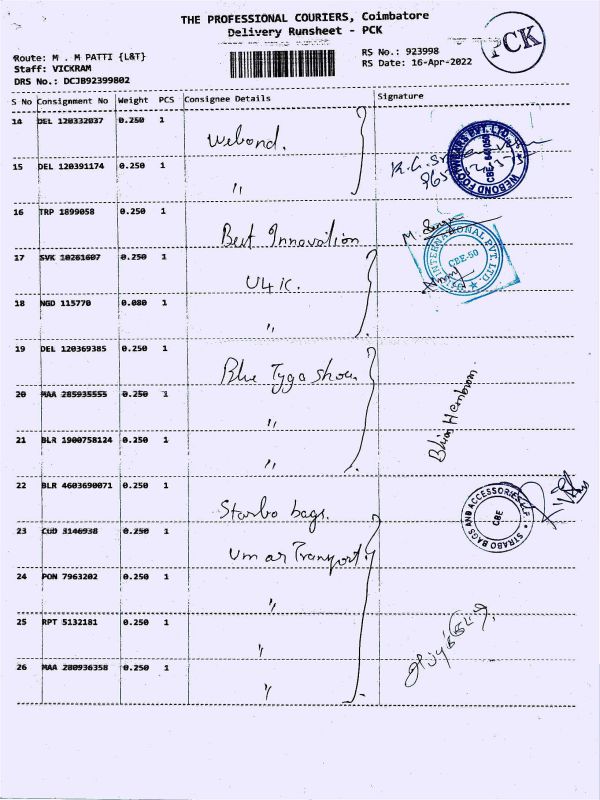 THE PROFESSIONAL COURIERS, Coimbatore
Delivery Runsheet - PCK
PCK
Route: M . M PATTI {L&T}
Staff: VICKRAM
DRS No.: DCJB92399802
RS No.: 923998
RS Date: 16-Apr-2022
S No Consignment No Weight PCS Consignee Details Signature
14 DEL 120332037 0.250 1 Webond.
15 DEL 120391174 0.250 1 "
WEBOND FOOTWEARS PVT. LTD. CBE- 641050
16 TRP 1899058 0.250 1 Best Innovation
17 SVK 10261607 0.250 1 U4ic.
INTERNATIONAL PVT. LTD. CBE-50
18 NGD 115770 0.080 1 "
19 DEL 120369385 0.250 1 Blue Tyga shoes
20 MAA 285935555 0.250 1 "
21 BLR 1900758124 0.250 1 "
22 BLR 4603690071 0.250 1 Starbo bags.
STRABO BAGS AND ACCESSORIES CBE
23 CUD 3146938 0.250 1 Umar Tranport
24 PON 7963202 0.250 1 "
25 RPT 5132181 0.250 1 "
26 MAA 280936358 0.250 1 "